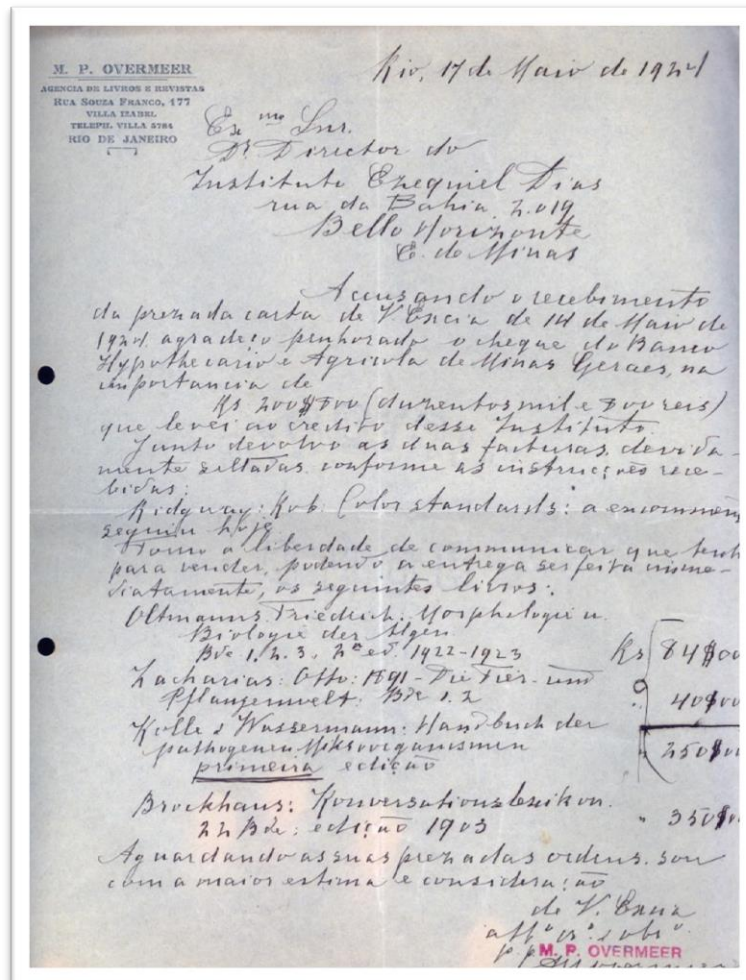 M. P. OVERMEER
AGENCIA DE LIVROS E REVISTAS
RUA SOUZA FRANCO, 177
VILLA IZABEL
TELEPH. VILLA 5784
RIO DE JANEIRO
Rio, 17 de Maio de 1924
Ex mo Snr.
Dr Director do
Instituto Ezequiel Dias
rua da Bahia, 2.019
Bello Horizonte
E. de Minas
Accusando o recebimento
da prezada carta de V. Excia de 14 de Maio de
1924, agradeço penhorado o cheque do Banco
Hypothecario e Agricola de Minas Geraes, na
importancia de
Rs 200$800 (duzentos mil e 800 reis)
que levei ao credito desse Instituto.
Junto devolvo as duas facturas, devida-
mente selladas, conforme as instrucções rece-
bidas:
Ridgway: Rob: Color standards: a encommen
seguiu hoje
Tomo a liberdade de communicar que tenh
para vender, podendo a entrega ser feita imme-
diatamente, os seguintes livros:
Oltmanns, Friedrich. Morphologie u.
Biologie der Algen
Bde 1. 2. 3. 2ª ed. 1922-1923 Rs 84$00
Zacharias: Otto: 1891 - Die Tier- und
Pflanzenwelt: Bde 1. 2 40$00
Kolle & Wassermann: Handbuch der
pathogenen Mikroorganismen " 250$0
primeira edição
Brockhaus: Konversationslexikon.
22 Bde: edição 1903 " 350$0
Aguardando as suas prezadas ordens, sou
com a maior estima e consideração
de V. Excia
p.p. M. P. OVERMEER